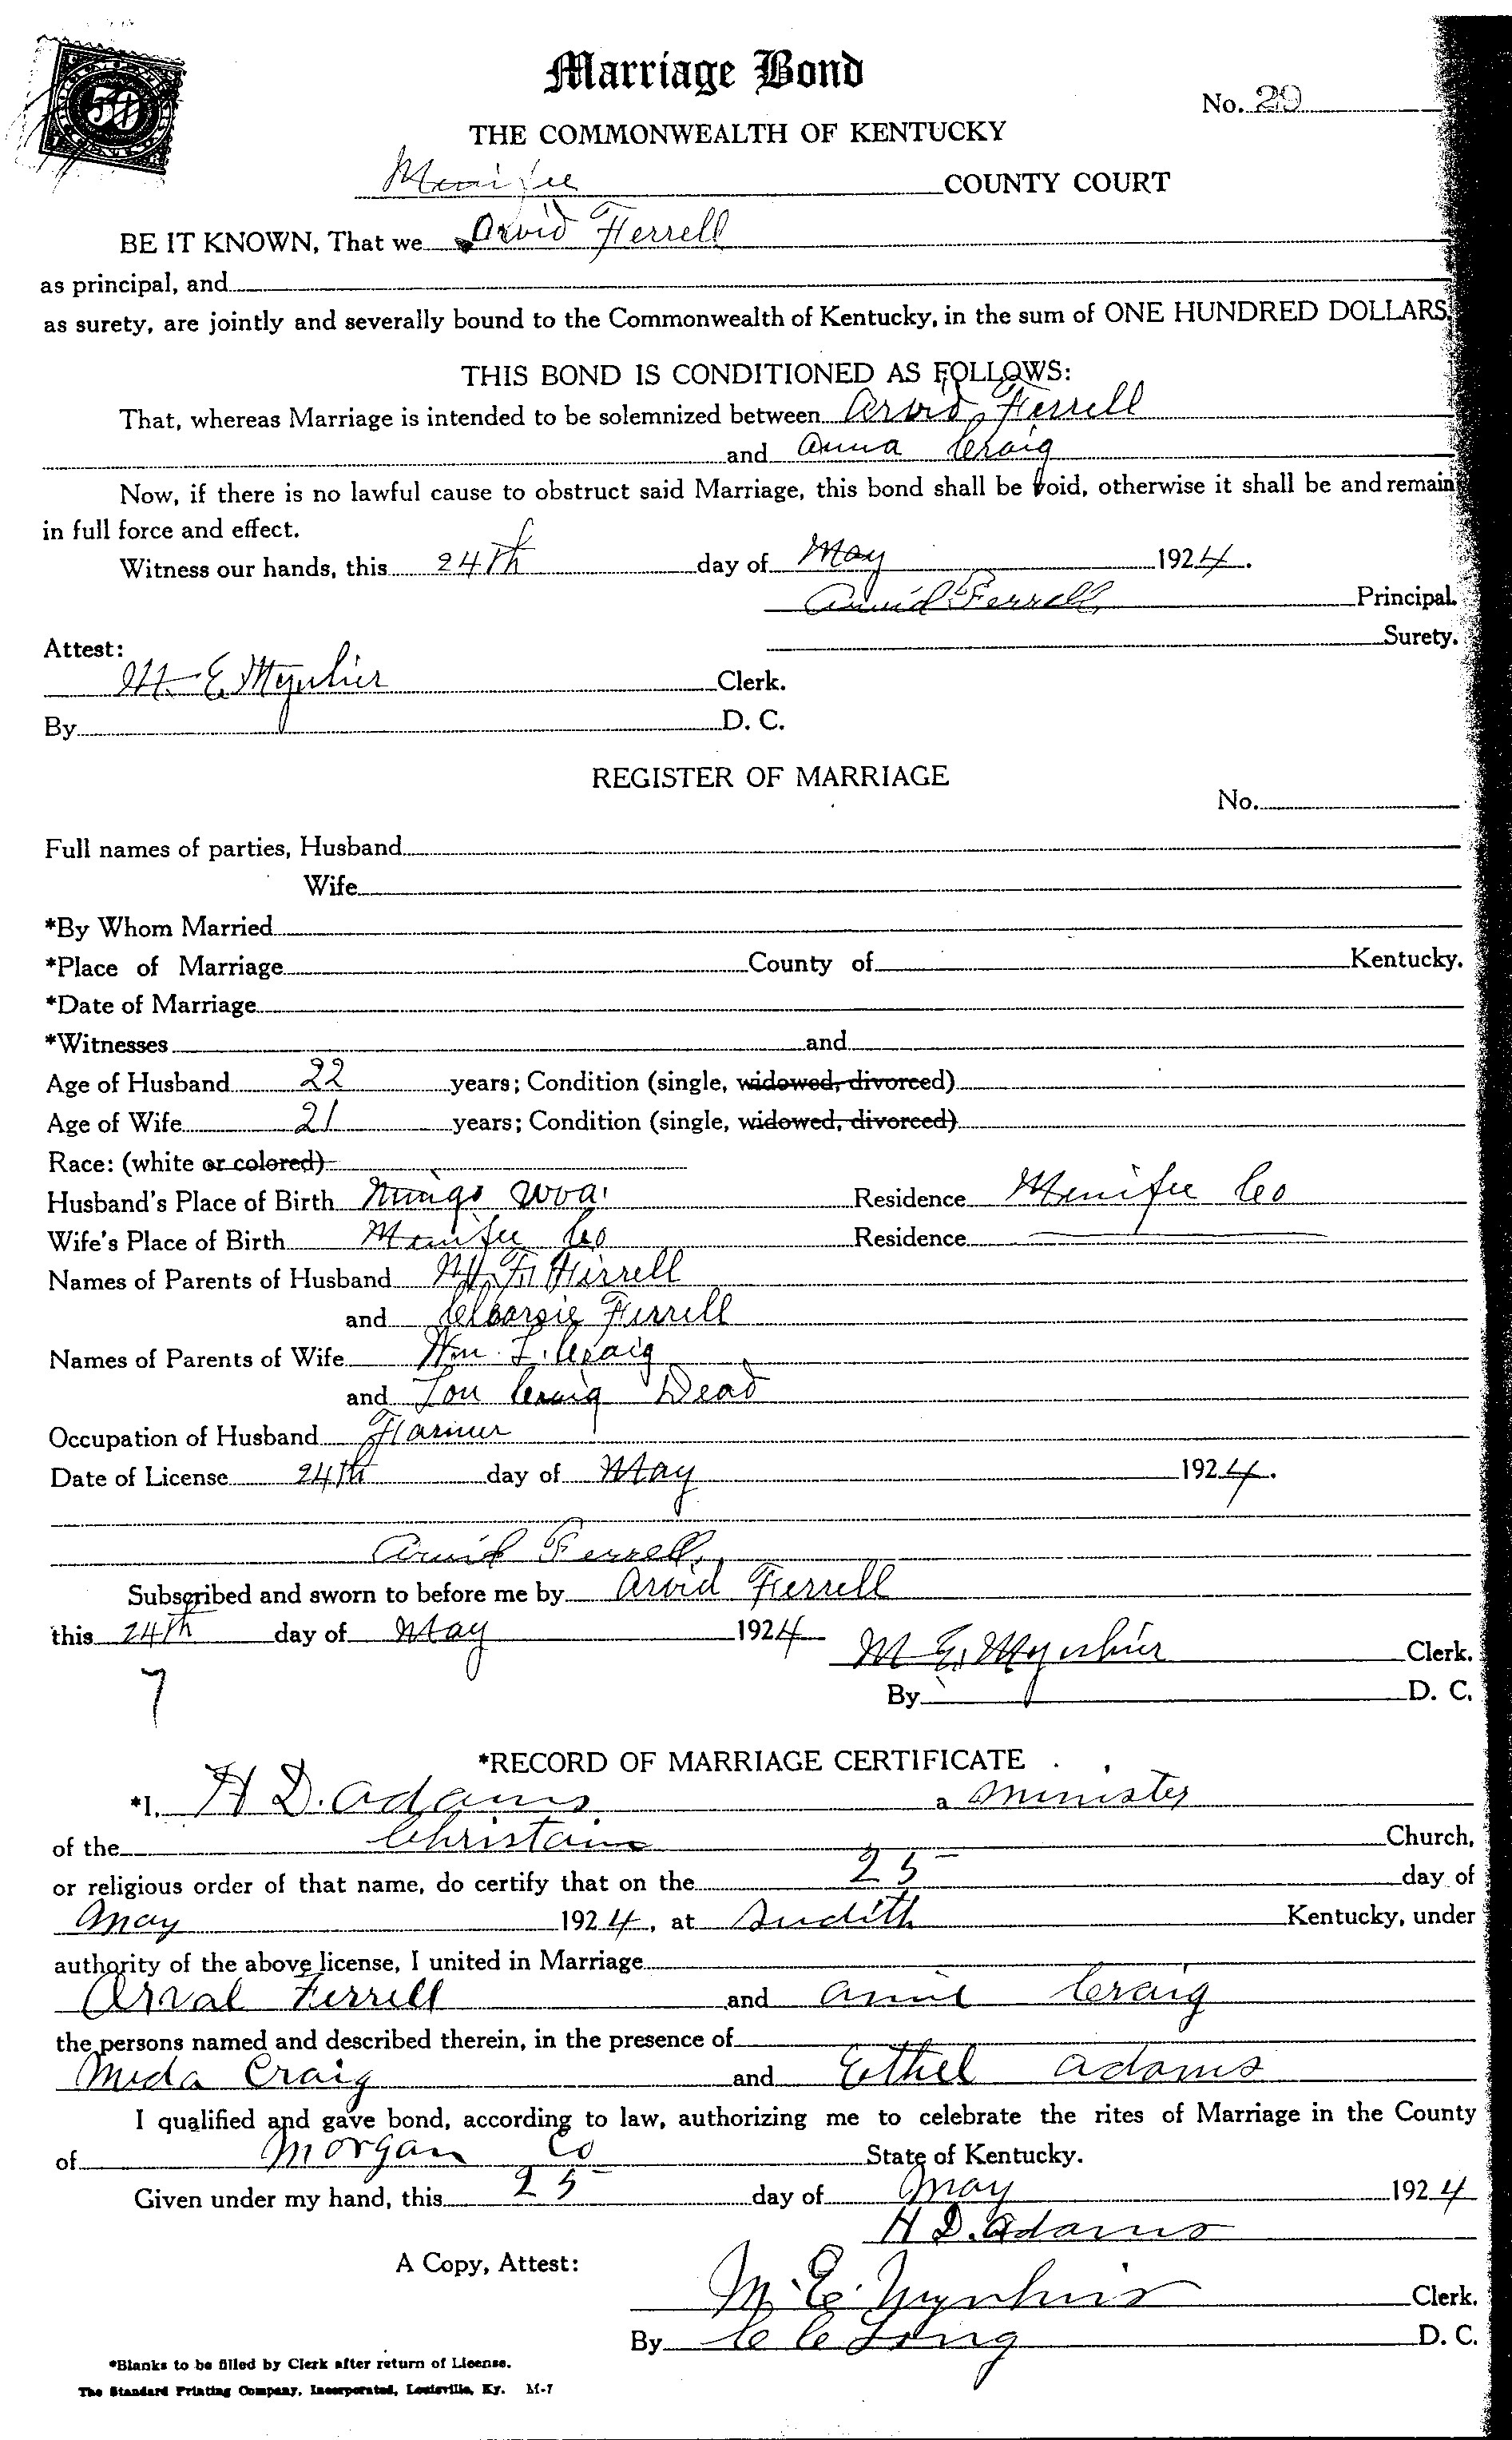 50
Marriage Bond
No. 29
THE COMMONWEALTH OF KENTUCKY
Menifee COUNTY COURT
BE IT KNOWN, That we Arvid Ferrell
as principal, and
as surety, are jointly and severally bound to the Commonwealth of Kentucky, in the sum of ONE HUNDRED DOLLARS
THIS BOND IS CONDITIONED AS FOLLOWS:
That, whereas Marriage is intended to be solemnized between Arvid Ferrell
and Anna Craig
Now, if there is no lawful cause to obstruct said Marriage, this bond shall be void, otherwise it shall be and remain
in full force and effect.
Witness our hands, this 24th day of May 1924.
Arvid Ferrell Principal.
Surety.
Attest:
M. E. Mynhier Clerk.
By D. C.
REGISTER OF MARRIAGE
No.
Full names of parties, Husband
Wife
*By Whom Married
*Place of Marriage County of Kentucky.
*Date of Marriage
*Witnesses and
Age of Husband 22 years; Condition (single, widowed, divorced)
Age of Wife 21 years; Condition (single, widowed, divorced)
Race: (white or colored)
Husband's Place of Birth Mingo Residence Menifee Co
Wife's Place of Birth Menifee Co Residence
Names of Parents of Husband Ferrell
and Ferrell
Names of Parents of Wife Wm. L. Craig
and Lou Craig Dead
Occupation of Husband Farmer
Date of License 24th day of May 1924.
Arvid Ferrell
Subscribed and sworn to before me by Arvid Ferrell
this 24th day of May 1924 M. E. Mynhier Clerk.
7
By D. C.
*RECORD OF MARRIAGE CERTIFICATE
*I, H D. Adams a Minister
of the Christain Church,
or religious order of that name, do certify that on the 25 day of
May 1924, at Sudith Kentucky, under
authority of the above license, I united in Marriage
Arval Ferrell and Annie Craig
the persons named and described therein, in the presence of
Meda Craig and Ethel Adams
I qualified and gave bond, according to law, authorizing me to celebrate the rites of Marriage in the County
of Morgan Co State of Kentucky.
Given under my hand, this 25 day of May 1924
H D. Adams
A Copy, Attest:
M. E. Mynhier Clerk.
By C C Long D. C.
*Blanks to be filled by Clerk after return of License.
The Standard Printing Company, Incorporated, Louisville, Ky. M-7